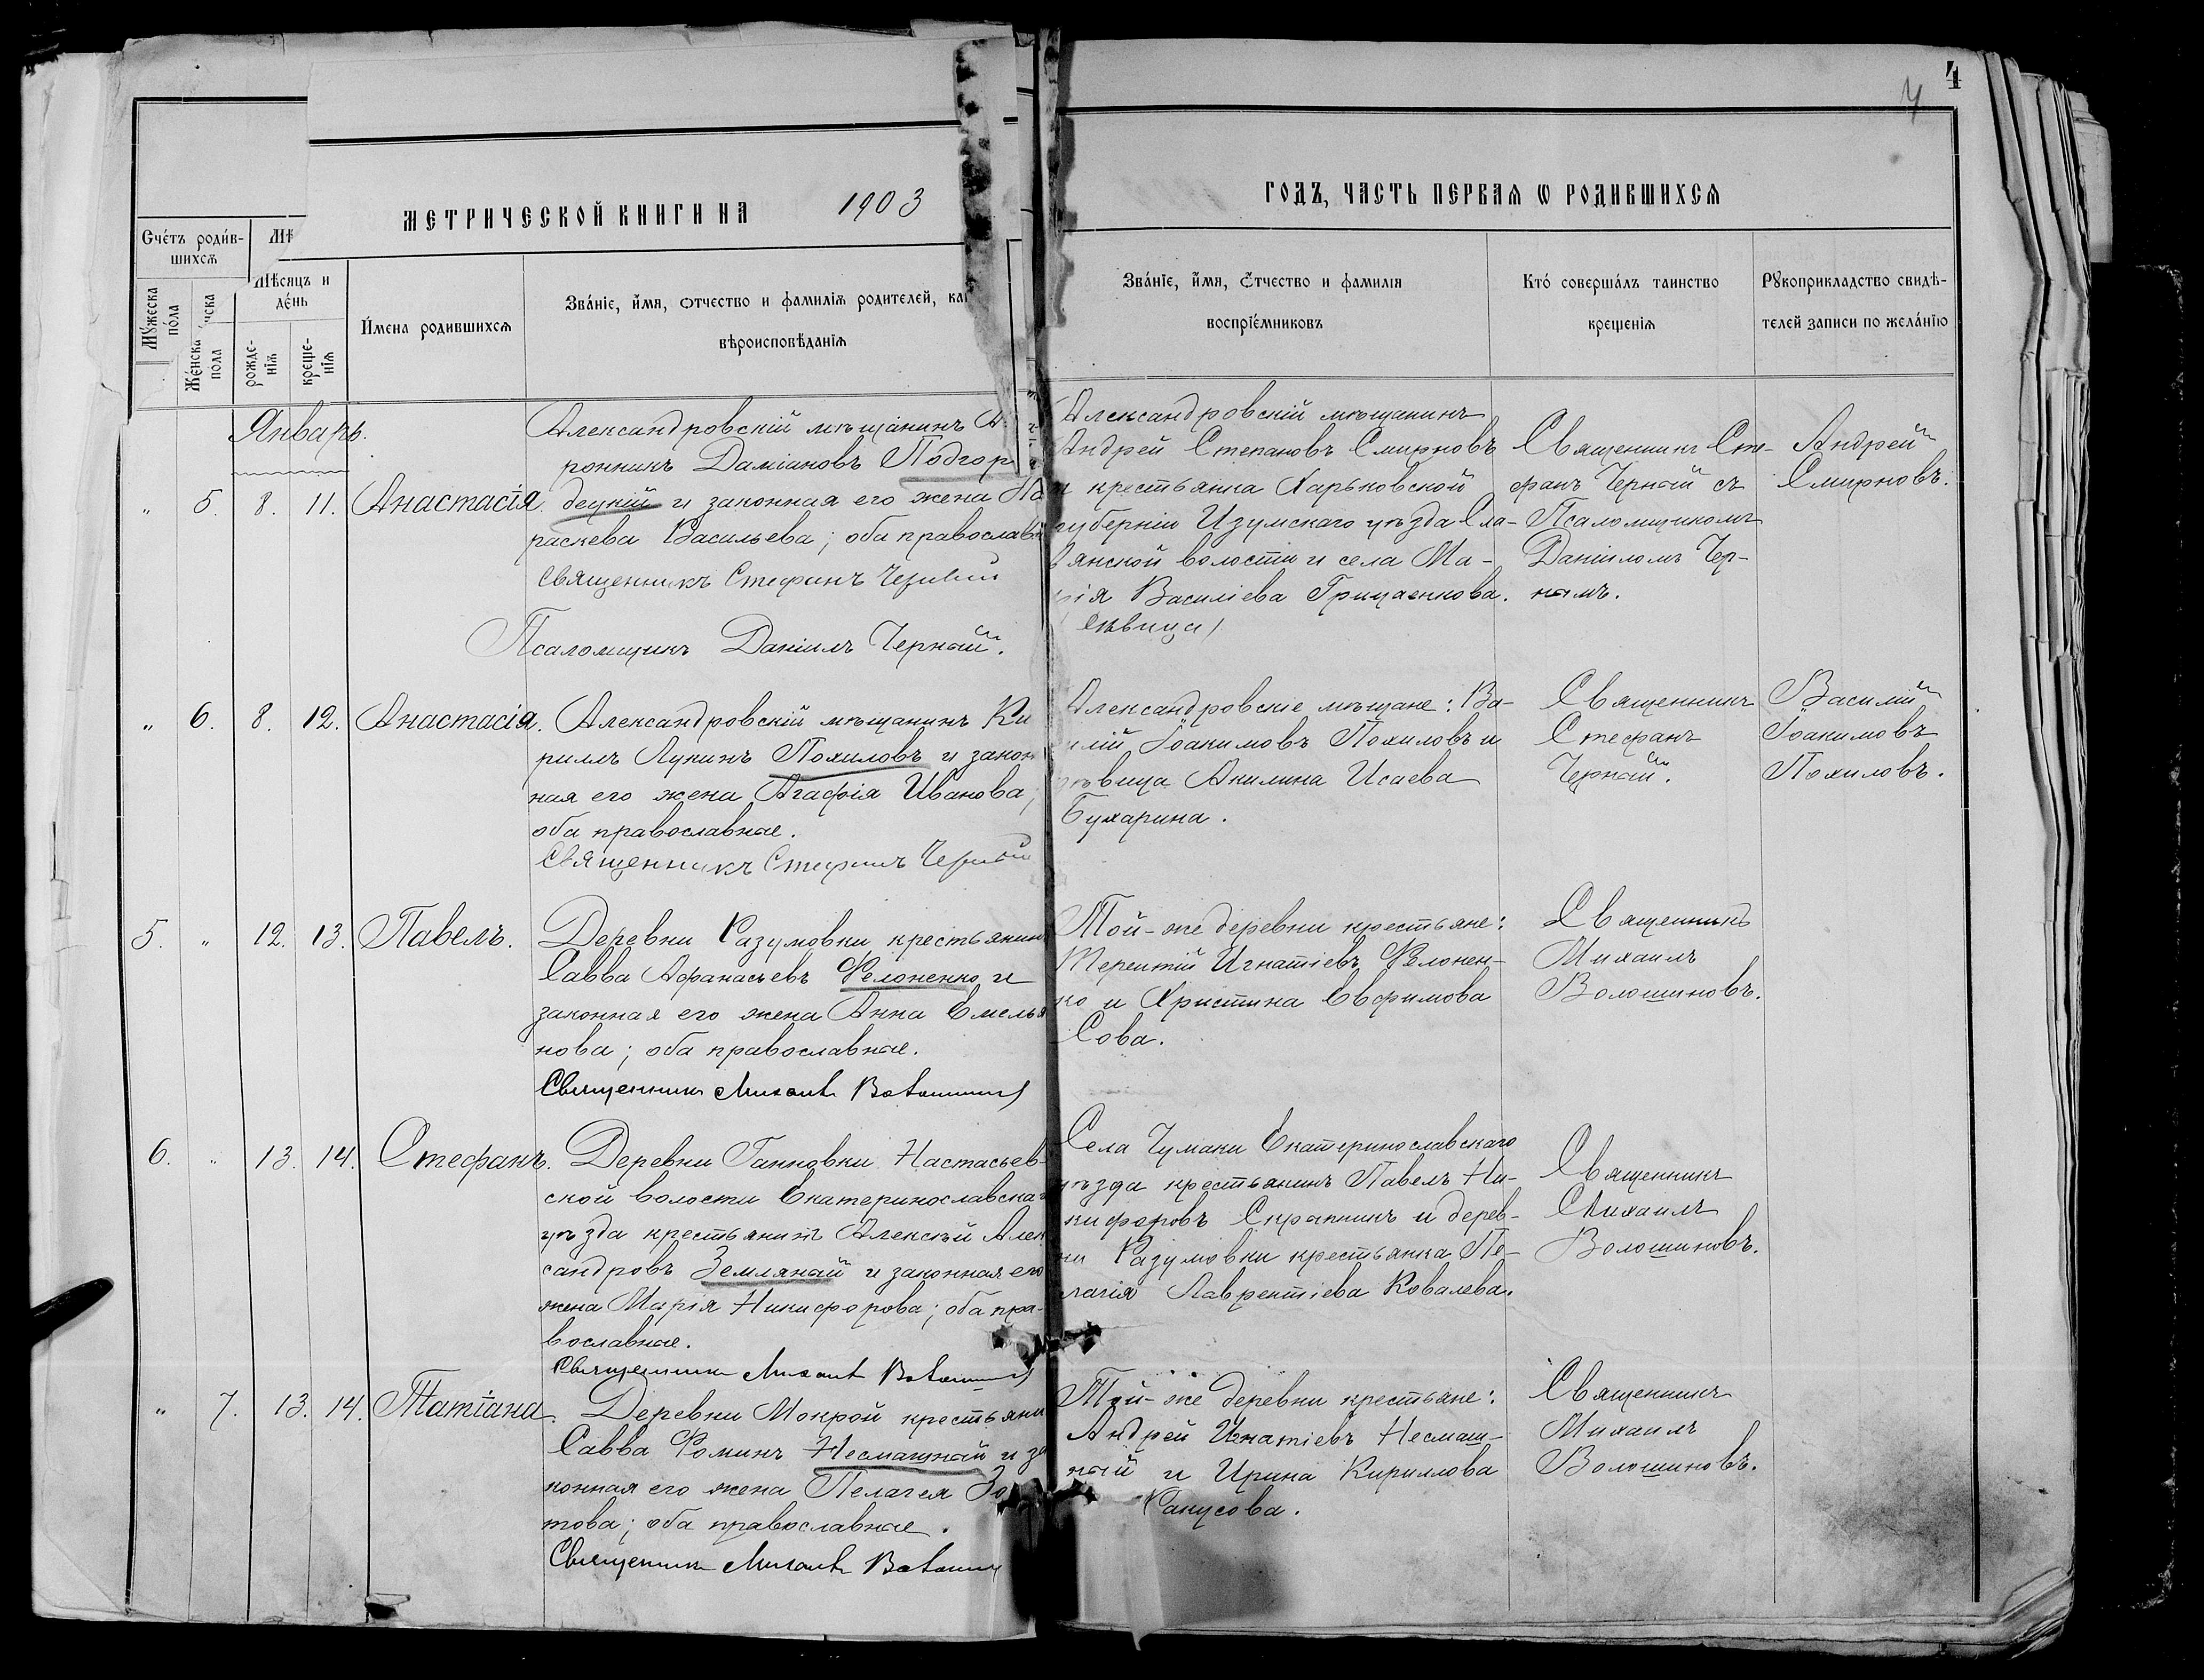 4
4
МЕТРИЧЕСКОЙ КНИГИ НА 1903
ГОДЪ, ЧАСТЬ ПЕРВАЯ Ѡ РОДИВШИХСЯ
Счетъ родив-
шихся
Мужеска
пола
Женска
пола
Мѣ
Мѣсяцъ и
день
рожде-
нія
креще-
нія
Имена родившихся
Званіе, имя, отчество и фамилія родителей, ка
вѣроисповѣданія
Званіе, имя, Ѿчество и фамилія
воспріемниковъ
Кто совершалъ таинство
крещенія
Рукоприкладство свидѣ-
телей записи по желанію
Январь.
„ 5. 8. 11. Анастасія.
Александровскій мѣщанинъ А
роникъ Даміановъ Подгор
децкій и законная его жена Па
раскева Васильева; оба православ
Священникъ Стефанъ Черный
Псаломщикъ Даніилъ Черный.
Александровскій мѣщанинъ
Андрей Степановъ Смирновъ
и крестьянка Харьковской
губерніи Изумскаго уѣзда Сла-
вянской волости и села Ма-
рія Василіева Грицаенкова.
Священникъ Сте-
фанъ Черный съ
Псаломщикомъ
Даніиломъ Чер-
нымъ.
Андрей
Смирновъ.
„ 6. 8. 12. Анастасія.
Александровскій мѣщанинъ Ки
риллъ Лукинъ Похиловъ и закон
ная его жена Агафія Иванова,
оба православные.
Священникъ Стефанъ Черный
Александровскіе мѣщане: Ва-
илій Іоакимовъ Похиловъ и
ѣвица Акилина Исаева
Бухарина.
Священникъ
Стефанъ
Черный.
Василій
Іоакимовъ
Похиловъ.
5. „ 12. 13. Павелъ.
Деревни Разумовки крестьянин
Савва Афанасьевъ Фелоненко и
законная его жена Анна Емелья
нова; оба православные.
Священникъ Михаилъ Волошинов
Той-же деревни крестьяне:
Терентій Игнатіевъ Фелонен-
ко и Христина Евфимова
Сова.
Священникъ
Михаилъ
Волошиновъ.
6. „ 13. 14. Стефанъ.
Деревни Ганновки Настасьев-
ской волости Екатеринославска
уѣзда крестьянинъ Алексѣй Алек
сандровъ Земляный и законная его
жена Марія Никифорова; оба пра-
вославные.
Священникъ Михаилъ Волошинов
Села Чумаки Екатеринославскаго
уѣзда крестьянинъ Павелъ Ни-
кифоровъ Скрапникъ и дерев-
ни Разумовки крестьянка Пе-
лагія Лаврентіева Ковалева.
Священникъ
Михаилъ
Волошиновъ.
„ 7. 13. 14. Татіана.
Деревни Мокрой крестьяни
Савва Фоминъ Несмашный и за
конная его жена Пелагея Зо
това; оба православные.
Священникъ Михаилъ Волошин
Той-же деревни крестьяне:
Андрей Игнатіевъ Несмаш-
ный и Ирина Кириллова
Ракусова.
Священникъ
Михаилъ
Волошиновъ.